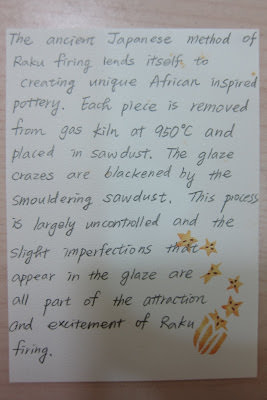 The ancient Japanese method of
Raku firing lends itself to
creating unique African inspired
pottery. Each piece is removed
from gas kiln at 950°C and
placed in sawdust. The glaze
crazes are blackened by the
smouldering sawdust. This process
is largely uncontrolled and the
slight imperfections that
appear in the glaze are
all part of the attraction
and excitement of Raku
firing.